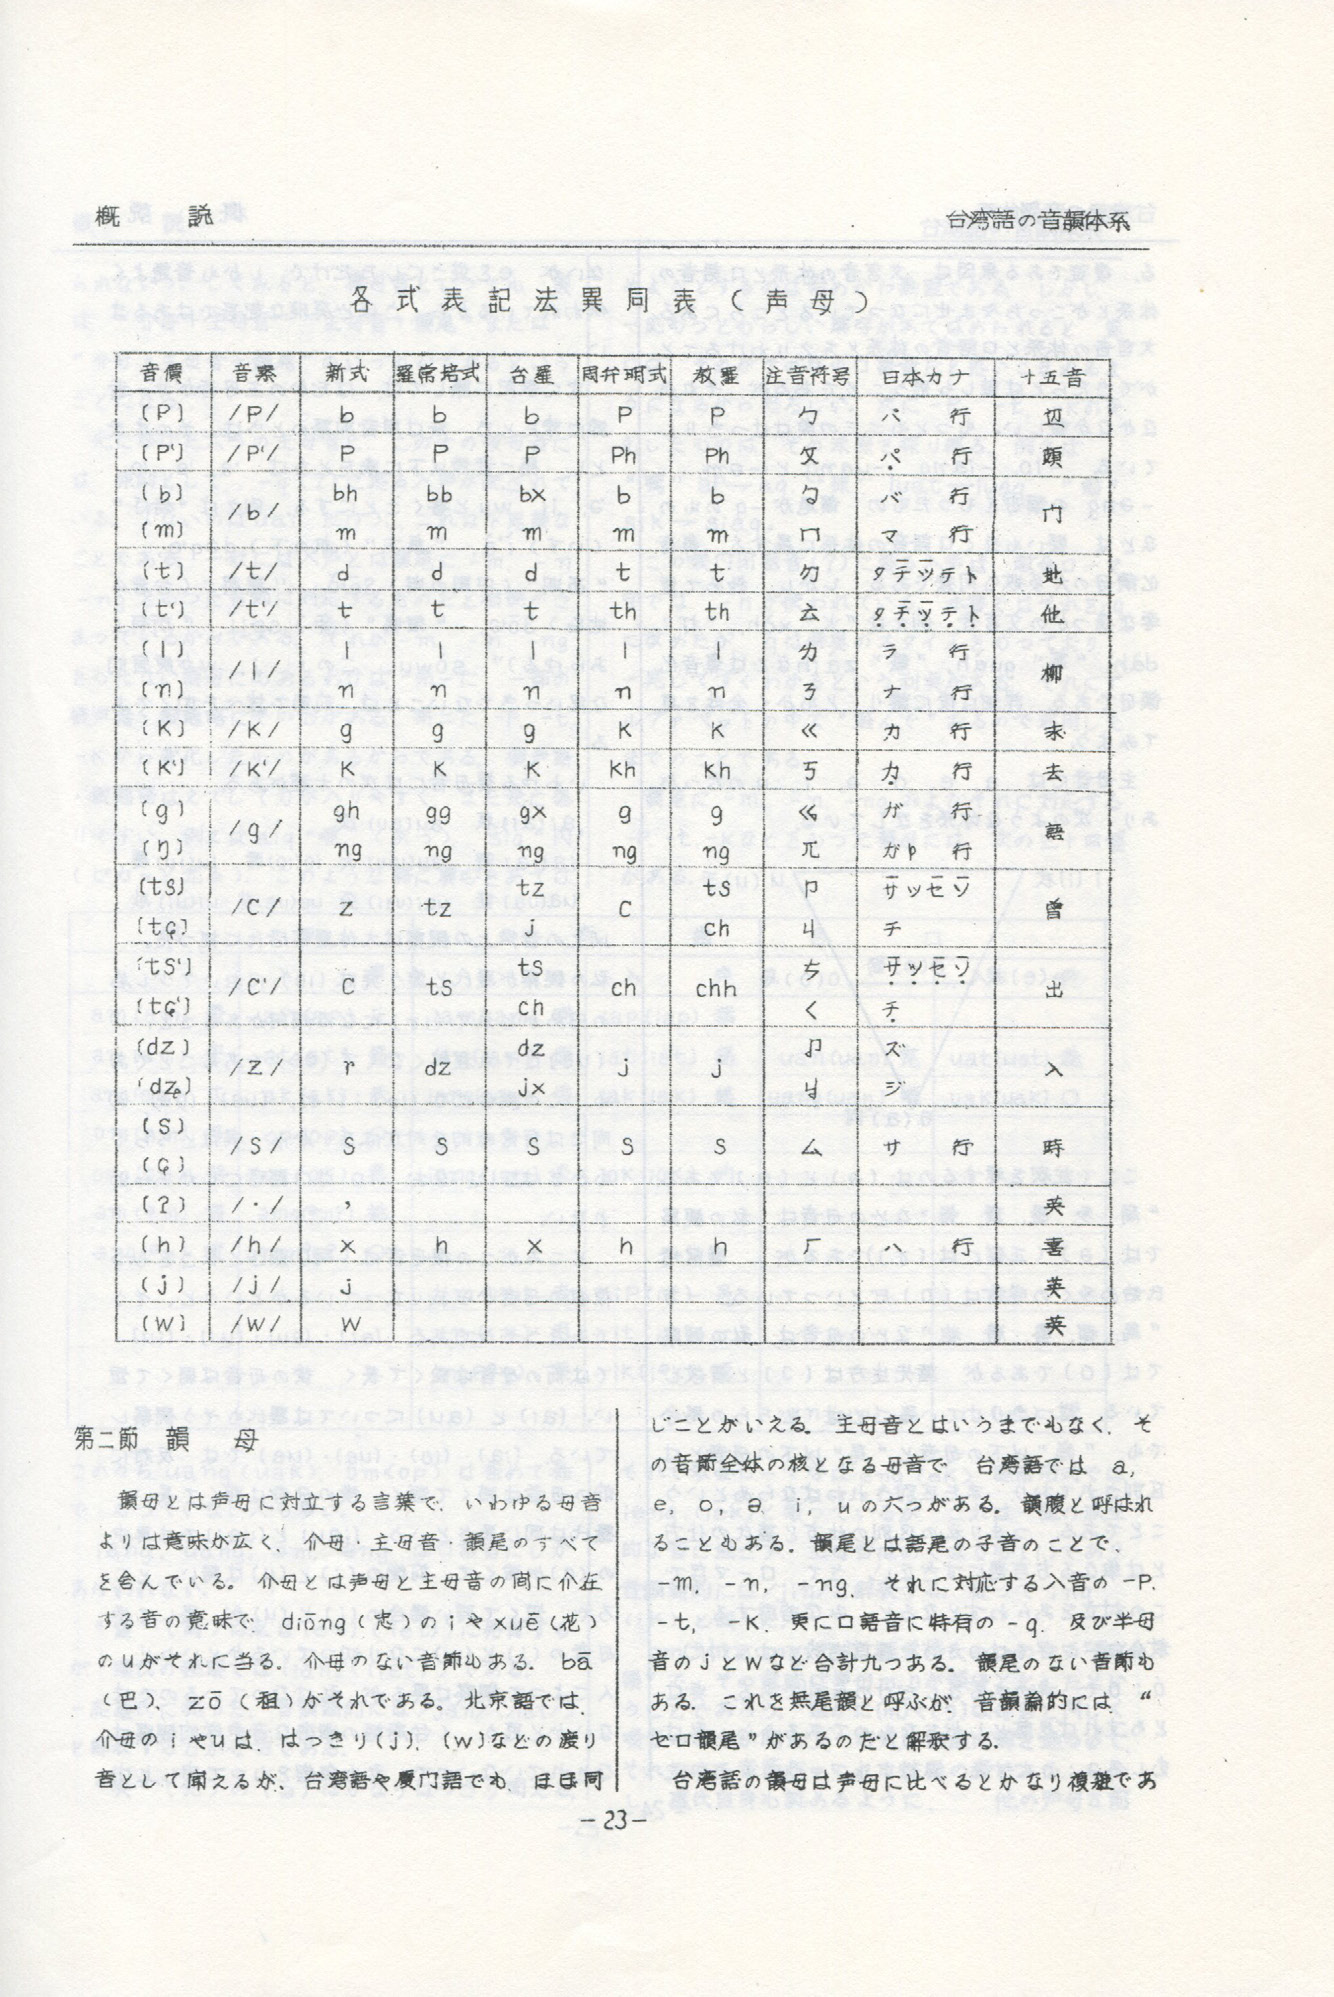 概　説
台湾語の音韻体系
各式表記法異同表（声母）
音價 音素 新式 羅常培式 台羅 周弁明式 教羅 注音符号 日本カナ 十五音
〔P〕 /P/ b b b P P ㄅ パ行 边
〔P'〕 /P'/ P P P Ph Ph ㄆ パ行 頗
〔b〕 /b/ bh bb bx b b ㆠ バ行 门
〔m〕 m m m m m ㄇ マ行
〔t〕 /t/ d d d t t ㄉ タチツテト 地
〔t'〕 /t'/ t t t th th ㄊ タチツテト 他
〔l〕 /l/ l l l l l ㄌ ラ行 柳
〔n〕 n n n n n ㄋ ナ行
〔K〕 /K/ g g g K K ㄍ カ行 求
〔K'〕 /K'/ K K K Kh Kh ㄎ カ行 去
〔g〕 /g/ gh gg gx g g ㆣ ガ行 語
〔ŋ〕 ng ng ng ng ng ㄫ ガ行
〔tS〕 /C/ z tz tz C tS ㄗ サッセソ 曽
〔tç〕 j ch ㄐ チ
〔tS'〕 /C'/ C tS tS ch chh ㄘ サッセソ 出
〔tç'〕 ch ㄑ チ
〔dz〕 /Z/ r dz dz j j ㆡ ズ 入
〔dʑ〕 jx ㆢ ジ
〔S〕 /S/ S S S S S ㄙ サ行 時
〔ç〕
〔ʔ〕 /・/ ’ 英
〔h〕 /h/ x h x h h ㄏ ハ行 喜
〔j〕 /j/ j 英
〔W〕 /W/ W 英
第二節 韻　母
韻母とは声母に対立する言葉で、いわゆる母音
よりは意味が広く、介母・主母音・韻尾のすべて
を含んでいる。介母とは声母と主母音の間に介在
する音の意味で diōng（忠）のiやxuē（花）
のuがそれに当る。介母のない音節もある。bā
（巴）、zō（租）がそれである。北京語では、
介母のiやuは、はっきり〔j〕、〔w〕などの渡り
音として聞えるが、台湾語や厦门語でも、ほぼ同
じことがいえる。主母音とはいうまでもなく、そ
の音節全体の核となる母音で 台湾語では a,
e, o, ə, i, uの六つがある。韻腹と呼ばれ
ることもある。韻尾とは語尾の子音のことで、
-m, -n, -ng、それに対応する入音の -P,
-t, -K、更に口語音に特有の -q、及び半母
音のjとwなど合計九つある。韻尾のない音節も
ある。これを無尾韻と呼ぶが、音韻論的には“
ゼロ韻尾”があるのだと解釈する。
台湾語の韻母は声母に比べるとかなり複雑であ
－23－